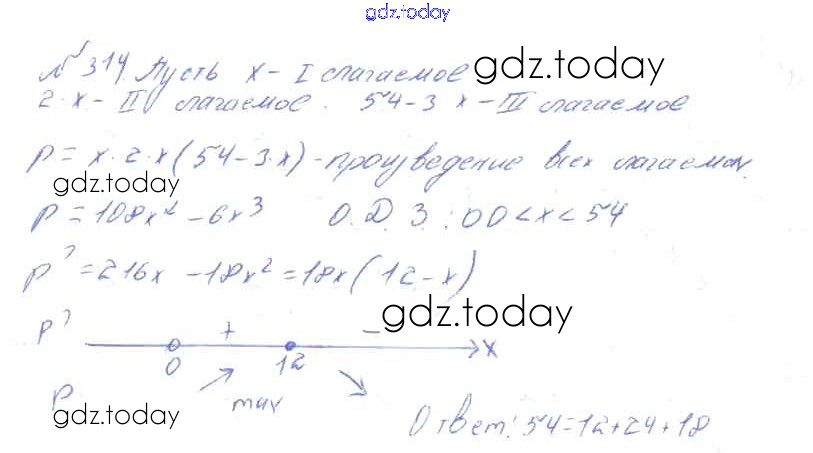 gdz.today
№ 314. Пусть x - I слагаемое gdz.today
2·x - II слагаемое. 54-3 x - III слагаемое
P = x·2·x(54-3·x) - произведение всех слагаемых.
gdz.today
P = 108x² - 6x³ О.Д.З.: 0 0 < x < 54
P' = 216x - 18x² = 18x(12-x)
gdz.today
P' + -
0 12 x
P max
gdz.today
Ответ: 54=12+24+18